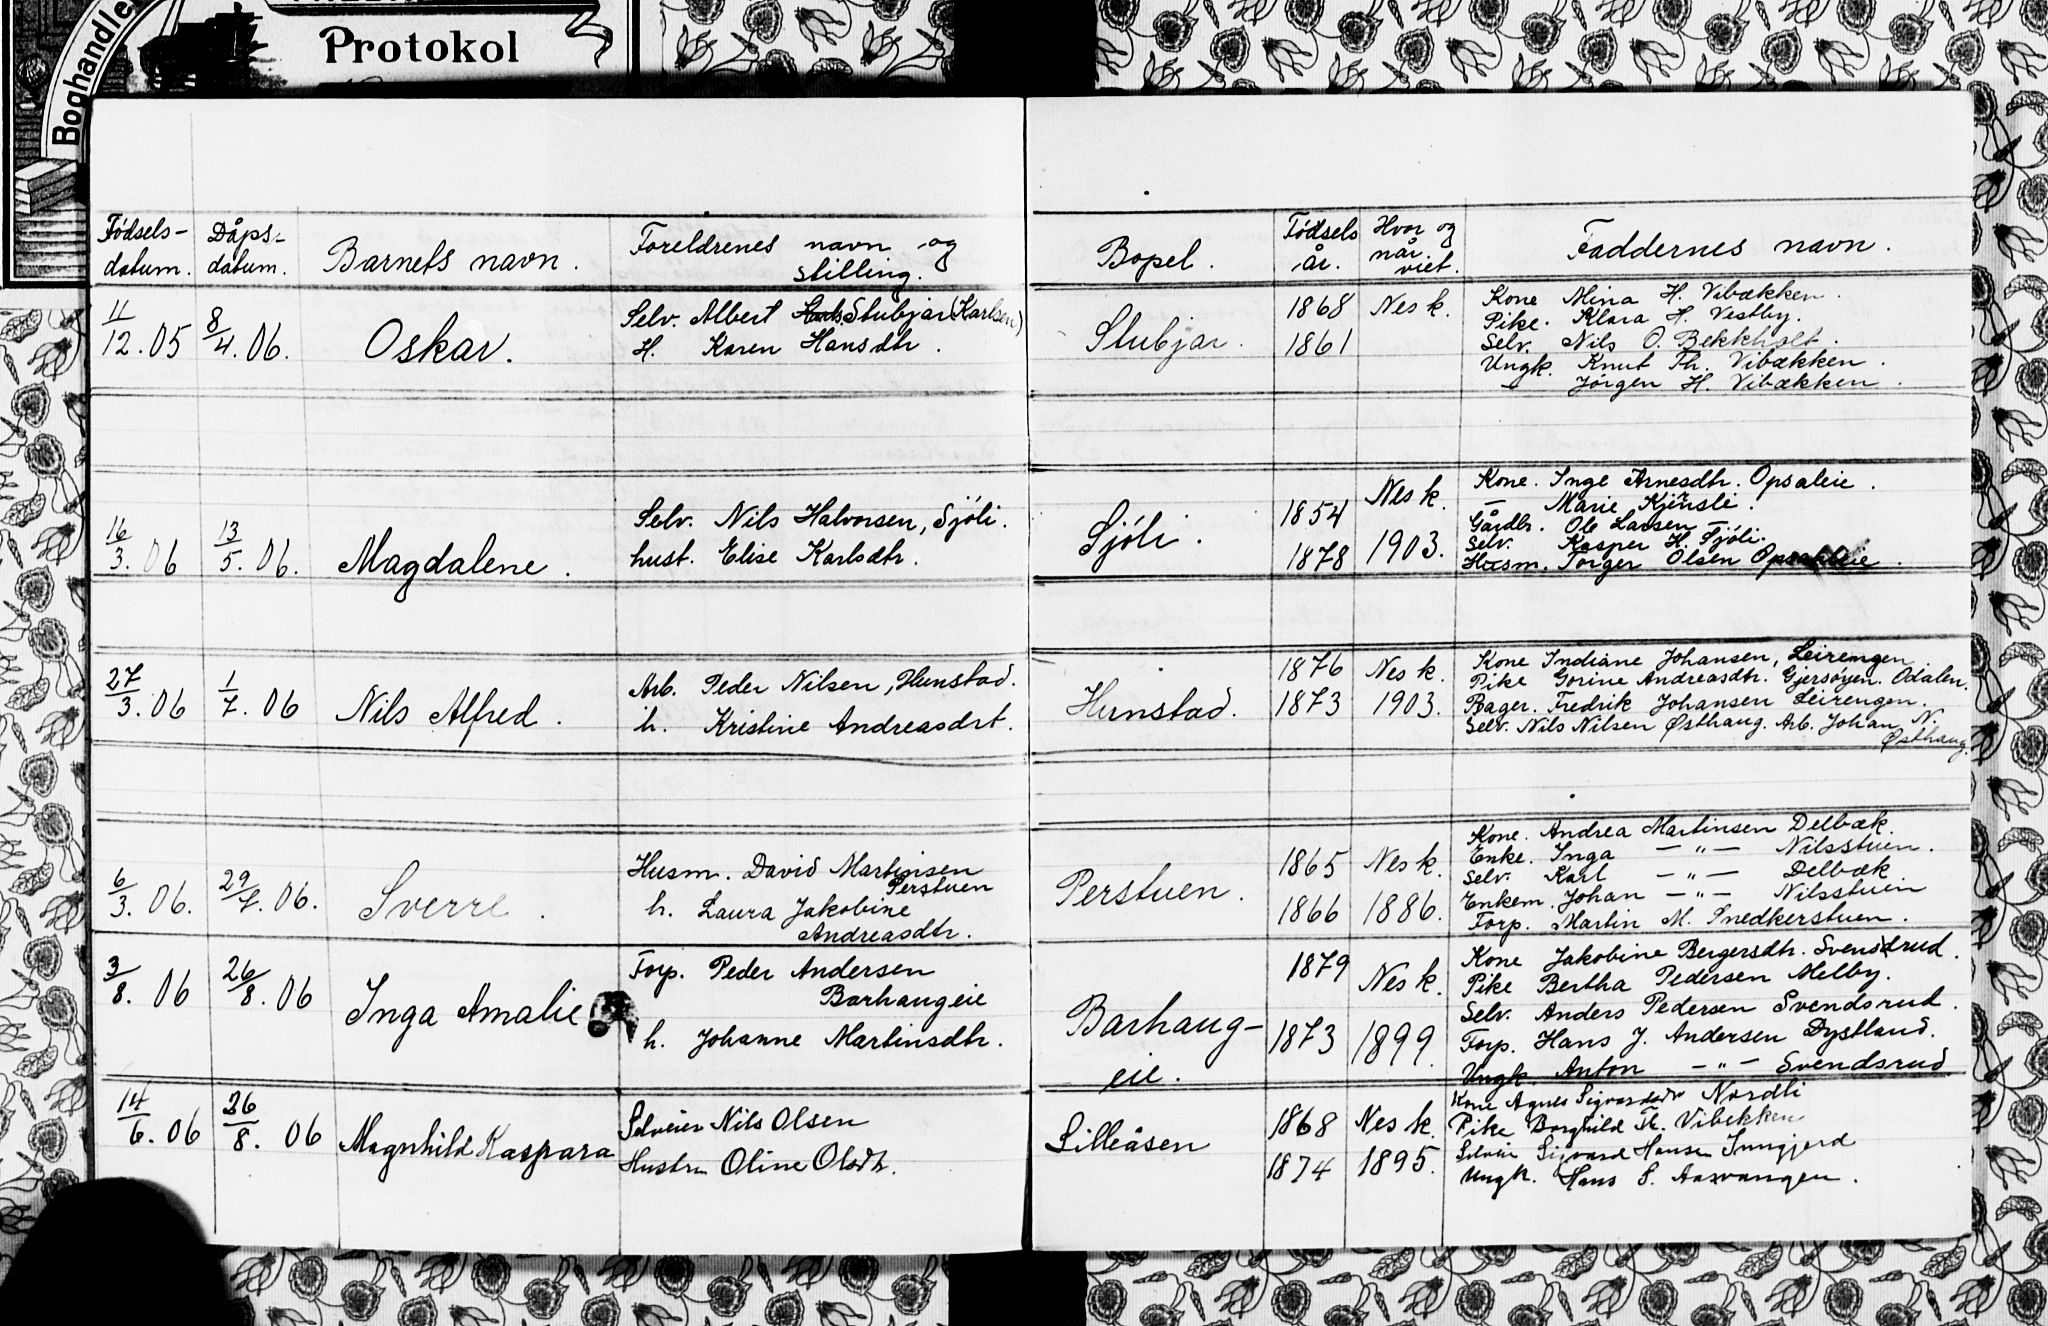 Boghandle
Protokol
Fødsels-
datum.
Dåps-
datum.
Barnets navn.
Foreldrenes navn og
stilling.
Bopel.
Fødsels
år.
Hvor og
når
viet.
Faddernes navn.
11/12. 05
8/4. 06.
Oskar.
Selv. Albert Stubjar (Karlsen)
H. Karen Hansdtr.
Stubjar.
1868
1861
Nes k.
Kone Mina H. Vibækken.
Pike. Klara H. Vestby.
Selv. Nils O. Bekkholt.
Ungk. Knut Th. Vibækken.
Jørgen H. Vibækken.
16/3. 06
13/5. 06.
Magdalene.
Selv. Nils Halvorsen, Sjøli.
hust. Elise Karlsdtr.
Sjøli.
1854
1878
Nes k.
1903.
Kone. Inge Arnesdtr. Opsaleie.
— Marie Kjensli.
Gårdbr. Ole Larsen
Selv. Kasper H. Sjøli.
Husm. Torger Olsen Opsaleie.
27/3. 06
1/7. 06
Nils Alfred.
Arb. Peder Nilsen, Hunstad.
h. Kristine Andreasdrt.
Hunstad.
1876
1873
Nes k.
1903.
Kone Indiane Johansen, Leirengen
Pike Gorine Andreasdtr. Gjersøyen. Odalen.
Bager. Fredrik Johansen Leirengen.
Selv. Nils Nilsen Østhaug. Arb. Johan N.
Østhaug.
6/3. 06.
29/7. 06.
Sverre.
Husm. David Martinsen
Perstuen
h. Laura Jakobine
Andreasdtr.
Perstuen.
1865
1866
Nes k.
1886.
Kone. Andrea Martinsen Delbæk.
Enke. Inga — „ — Nilsstuen.
Selv. Karl — „ — Delbæk
Enkem. Johan — „ — Nilsstuen
Forp. Martin M. Snedkerstuen.
3/8. 06
26/8. 06
Inga Amalie
Forp. Peder Andersen
Barhaugeie
h. Johanne Martinsdtr.
Barhaug-
eie.
1879
1873
Nes k.
1899.
Kone Jakobine Bergersdtr. Svensdrud.
Pike Bertha Pedersen Melby.
Selv. Anders Pedersen Svendsrud.
Forp. Hans J. Andersen Dystland.
Ungk. Anton — „ — Svendsrud.
14/6. 06
26/8. 06
Magnhild Kaspara
Selveier Nils Olsen
Hustru Oline Olsdtr.
Lilleåsen
1868
1874
Nes k.
1895.
Kone Agnes Sigvardsdtr Nordli
Pike Borghild Th. Vibekken
Selveier Sigvard Hansen
Ungk. Hans S. Aasvangen.